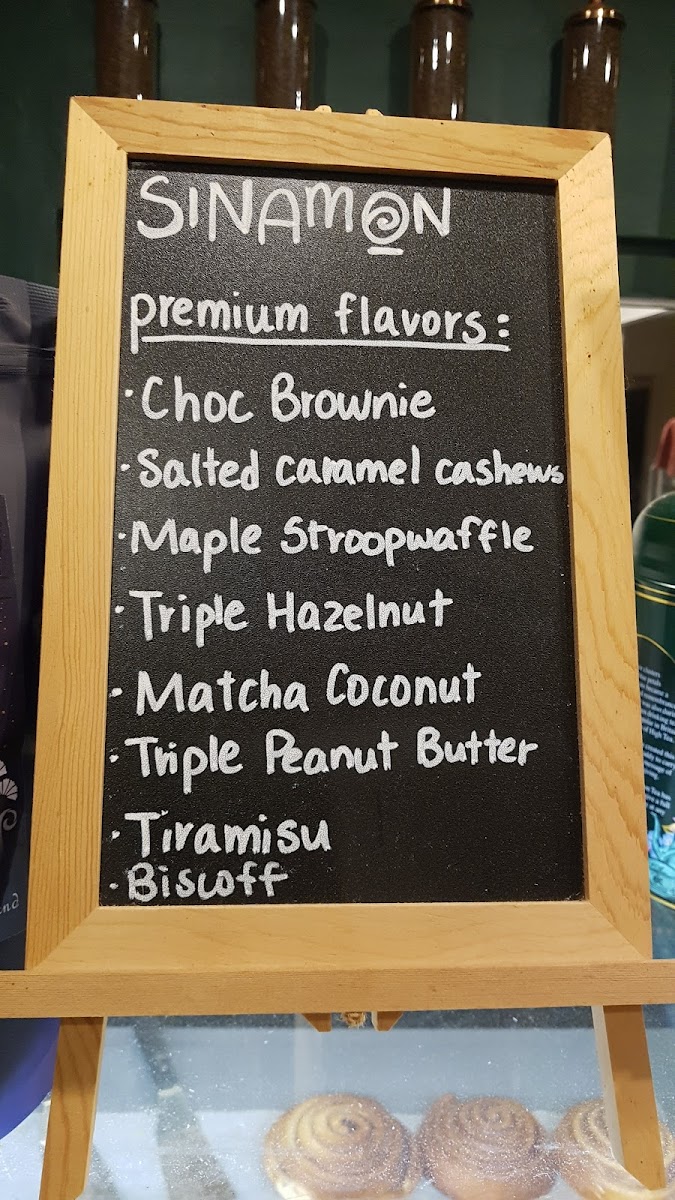 SINAMON
premium flavors:
· Choc Brownie
· Salted caramel cashews
· Maple Stroopwaffle
· Triple Hazelnut
· Matcha Coconut
· Triple Peanut Butter
· Tiramisu
· Biscoff